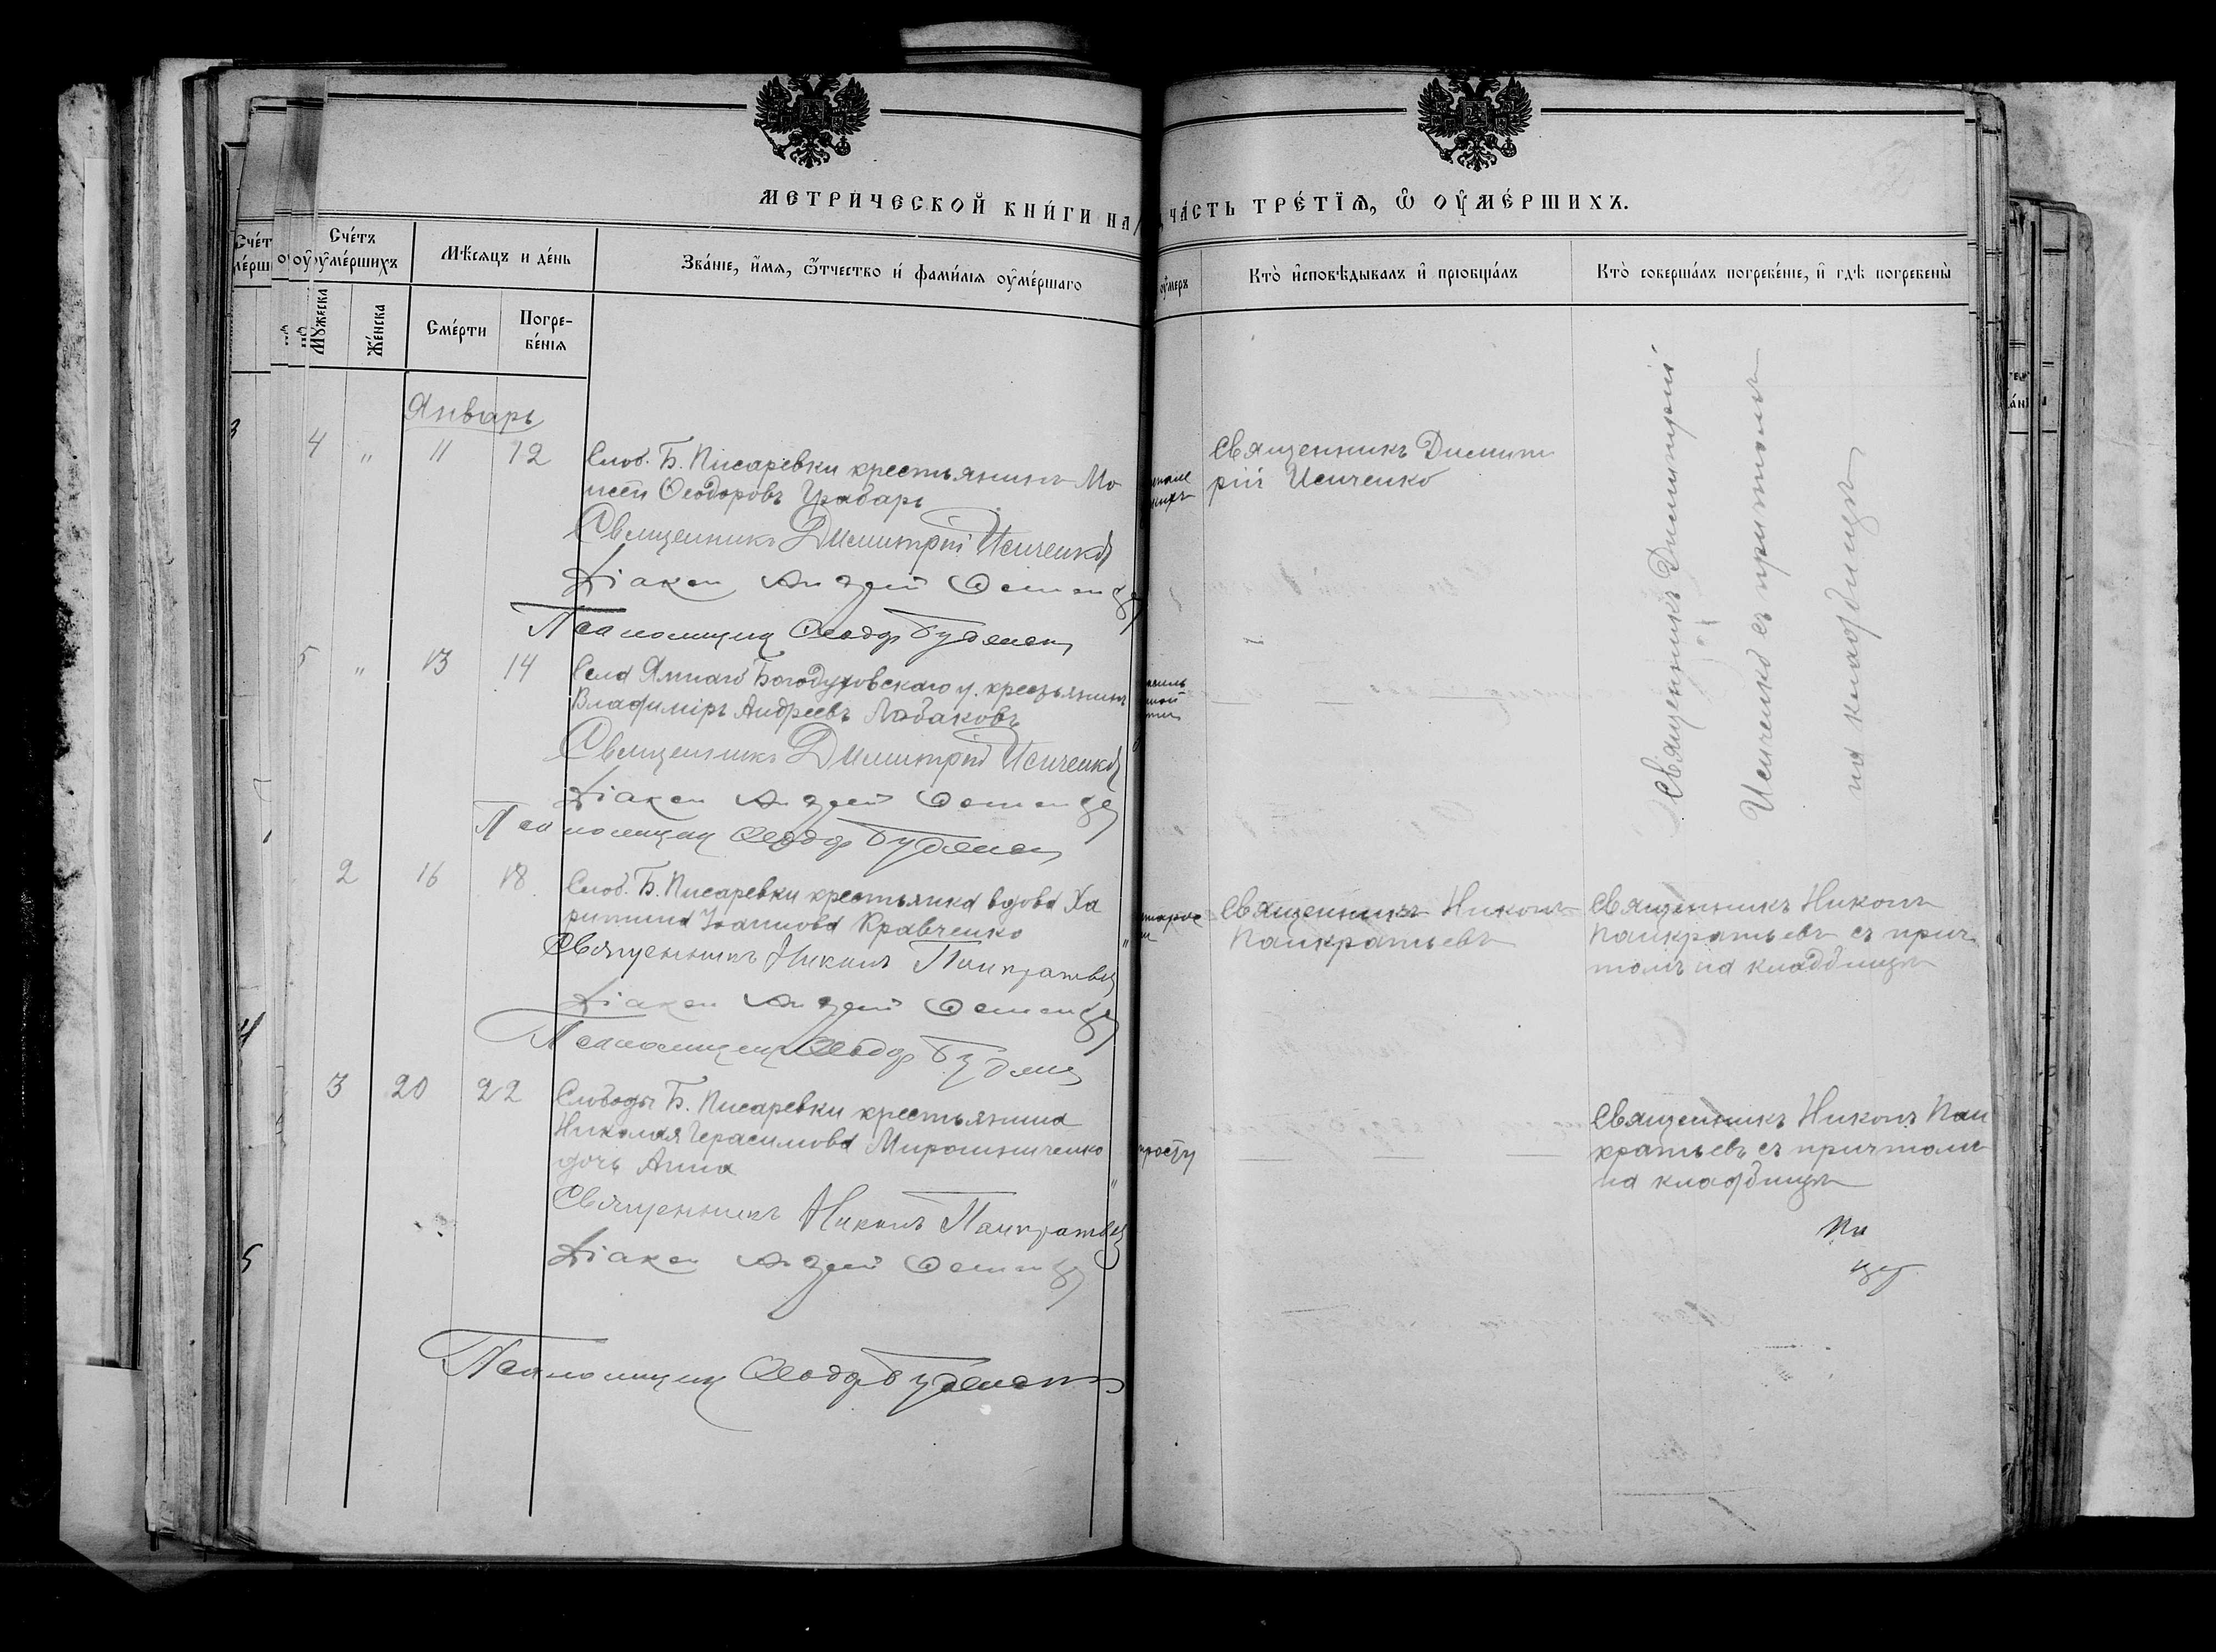 МЕТРИЧЕСКОЙ КНИГИ НА
ЧАСТЬ ТРЕТІѦ, Ѡ ОУМЕРШИХЪ.
Счетъ
оумершихъ
Мужеска
Женска
Мѣсяцъ и день
Смерти
Погре-
бенїѧ
Званіе, имѧ, ѿчество и фамилїѧ оумершаго
оумеръ
Кто исповѣдывалъ и прїобщалъ
Кто совершалъ погребенїе, и гдѣ погребены
Январь
4 " 11 12
Слоб. Б. Писаревки крестьянинъ Мо
исей Ѳеодоровъ Грабарь
Священникъ Димитрій Исиченко
Діакон Андрей
Псаломщик Ѳеодор
Священникъ Димит
рій Исиченко
Священникъ Димитрій
Исиченко съ причтомъ
на кладбищѣ
5 " 13 14
Села Ямнаго Богодуховскаго у. крестьянинъ
Владиміръ Андреевъ Лобаковъ
Священникъ Димитрій Исиченко
Діакон Андрей
Псаломщик Ѳеодор
2 16 18
Слоб. Б. Писаревки крестьянка вдова Ха
ритина Іоаннова Кравченко
Священникъ Никонъ Панкратьевъ
Діакон Андрей
Псаломщик Ѳеодор
Священникъ Никонъ
Панкратьевъ
Священникъ Никонъ
Панкратьевъ съ прич
томъ на кладбищѣ
3 20 22
Слободы Б. Писаревки крестьянина
Николая Герасимова Мирошниченко
дочь Анна
Священникъ Никонъ Панкратьевъ
Діакон Андрей
Псаломщик Ѳеодор
Священникъ Никонъ Пан
кратьевъ съ причтомъ
на кладбищѣ